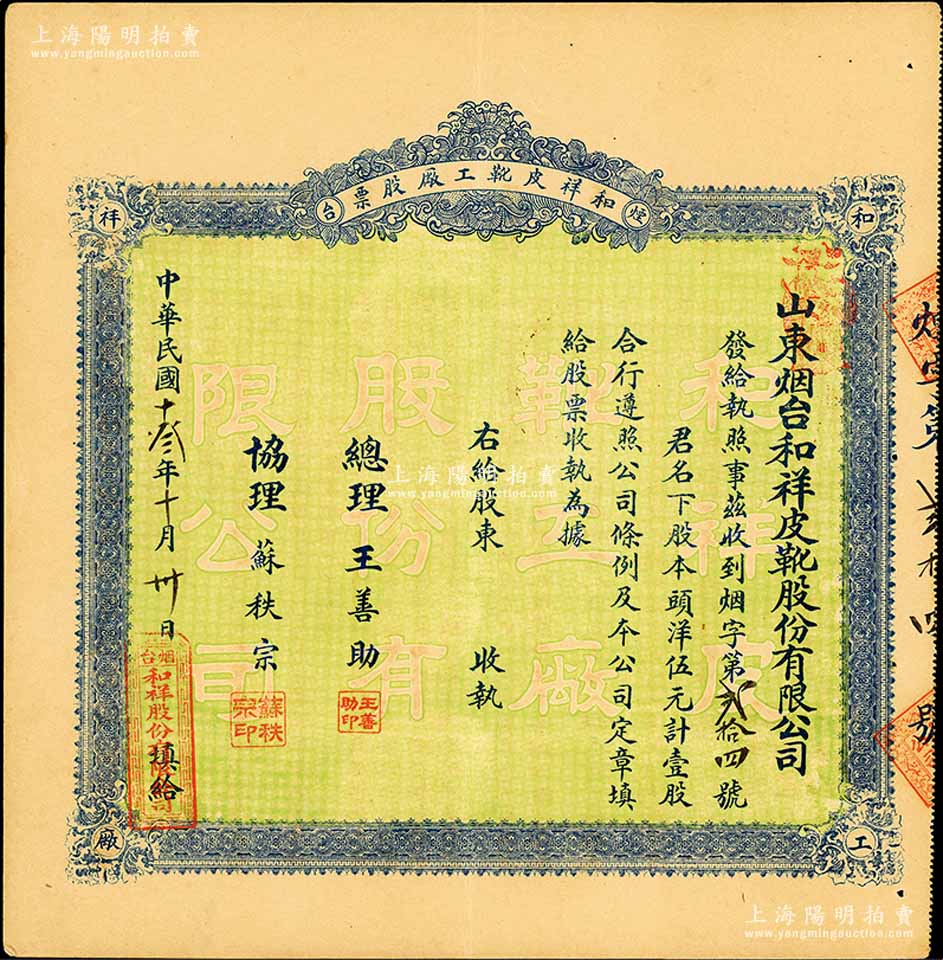 上海陽明拍賣
www.yangmingauction.com
和祥皮靴工廠股票
煙
台
和
祥
工
廠
山東烟台和祥皮靴股份有限公司
發給執照事茲收到烟字第貳拾四號
君名下股本頭洋伍元計壹股
合行遵照公司條例及本公司定章填
給股票收執為據
右給股東 收執
總理 王善助
王善助印
協理 蘇秩宗
蘇秩宗印
中華民國十叁年十月卅日
填給
烟台
和祥股份有限公司
和祥皮
靴工廠
股份有
限公司
號
上海陽明拍賣
www.yangmingauction.com
上海陽明拍賣
www.yangmingauction.com